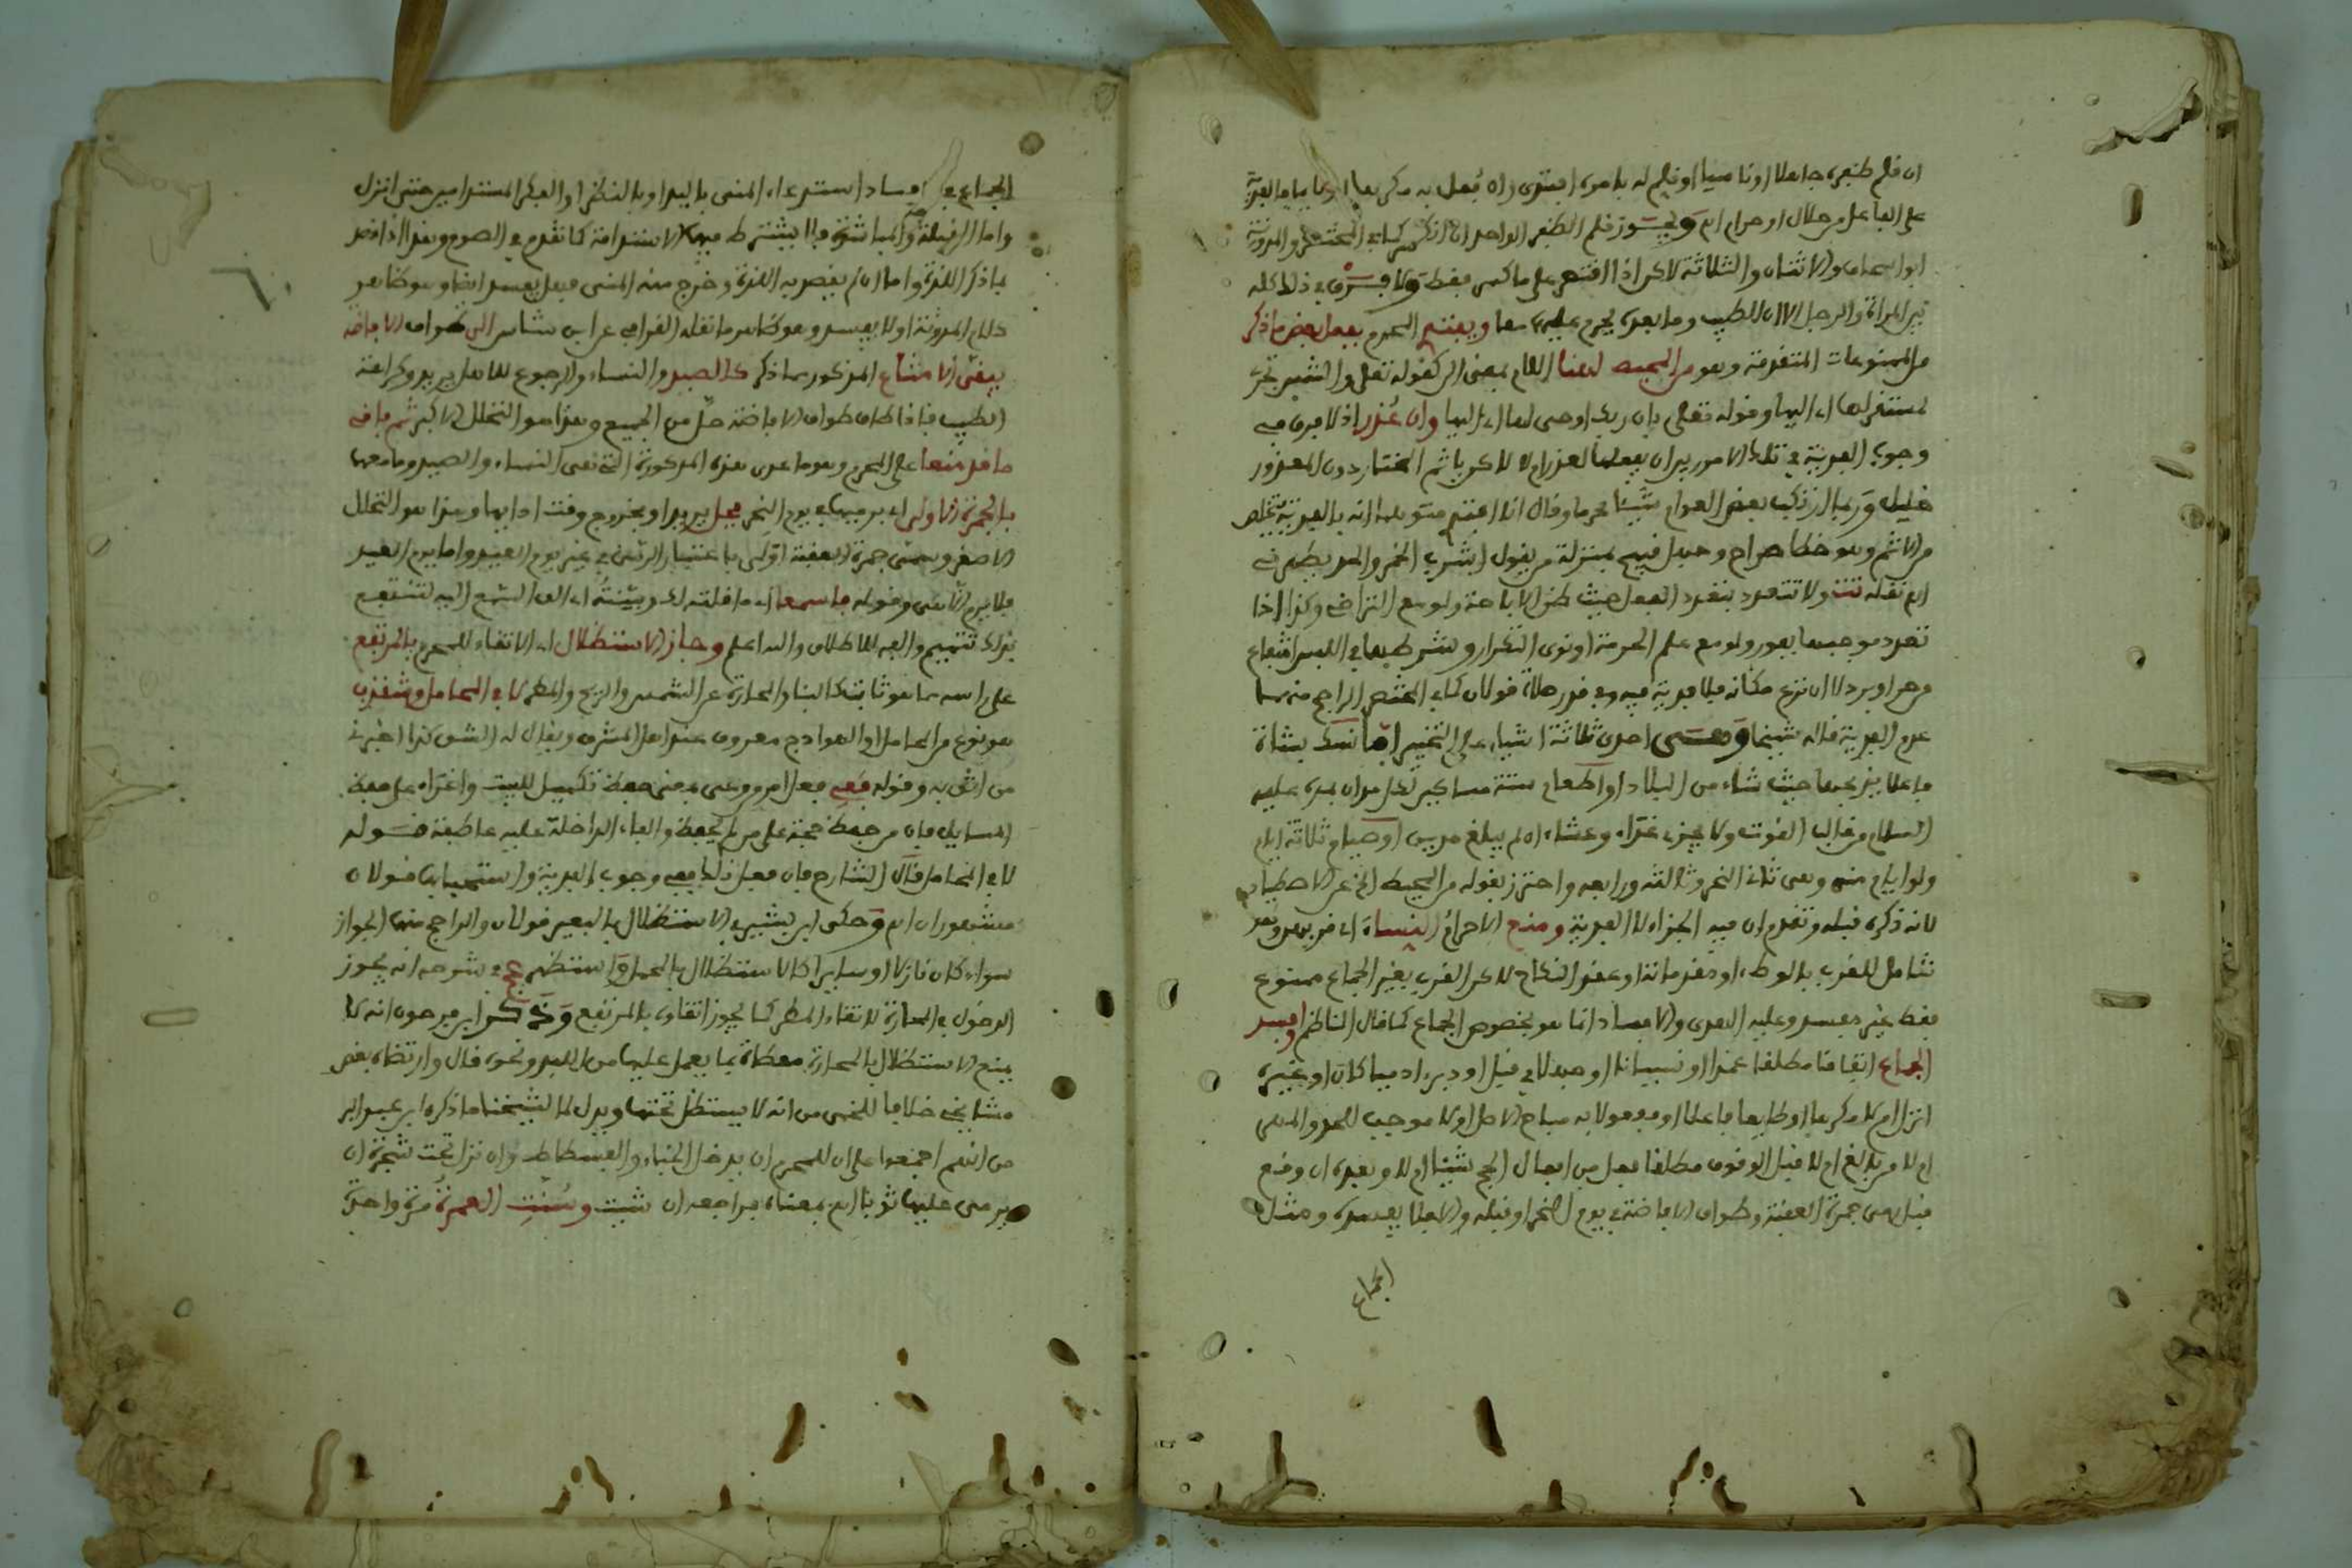 ان قلم ظفره جاهلا او ناسيا او قلم له بامره افتدى وان فعل به مكرها او نايما فالفدية
على الفاعل من حلال او حرام اه ويجوز قلم الظفر الواحد ان انكسر كما في المختصر والمدونة
ابو اسحاق والاثنان والثلاثة لاكن اذا اقتصر على ما كسر فقط ولا فرق في ذلك كله
بين المراة والرجل الا ان الطيب وما بعده يحرم عليهما معا ويفتدي المحرم بفعل بعض ما ذكر
من الممنوعات المتقدمة وهو من المحيط لهنا اللام بمعنى الى كقوله تعلى والشمس تجري
لمستقر لها اي اليها وقوله تعلى بان ربك اوحى لها اي اليها وان عذر اذ لا فرق في
وجوب الفدية في تلك الامور بين ان يفعلها لعذر ام لا لاكن ياثم المختار دون المعذور
خليل وربما ارتكب بعض العوام شيئا محرما وقال انا افتدي متوهما انه بالفدية يتخلص
من الاثم وهو خطا صراح وجهل قبيح بمنزلة من يقول اشرب الخمر والحد يطهرني
اه نقله تت ولا تتعدد بتعدد الفعل حيث ظن الاباحة ولو مع التراخي وكذا اذا
تعدد موجبها بفور ولو مع علم الحرمة او نوى التكرار وشرطها في اللبس انتفاع
من حر او برد لا ان نزع مكانه فلا فدية فيه وفي قدر صلاة قولان كما في المختصر الراجح منهما
عدم الفدية قاله شيخنا وهي احدى ثلاثة اشياء على التخيير اما نسك بشاة
فاعلا يذبحها حيث شاء من البلاد او اطعام ستة مساكين لكل مدان بمده عليه
السلام من غالب القوت ولا يجزئ غداء وعشاء ان لم يبلغ مدين او صيام ثلاثة ايام
ولو ايام منى وهي ثاني النحر وثالثه ورابعه واحترز بقوله من المحيط الخ عن الاصطياد
لانه ذكره قبله وتقدم ان فيه الجزاء لا الفدية ومنع الاحرام النساء اي قربهن وهو
شامل للقرب بالوطء او مقدماته او عقد النكاح لاكن القرب بغير الجماع ممنوع
فقط غير مفسد وعليه الهدي والافساد انما هو بخصوص الجماع كما قال الناظم وافسد
الجماع اتفاقا مطلقا عمدا او نسيانا او جهلا في قبل او دبر ادميا كان او غيره
انزل ام لا مكرها او طايعا فاعلا او مفعولا به مباح الاصل او لا موجب للحد والمهر
ام لا من بالغ ام لا قبل الوقوف مطلقا فعل من افعال الحج شيئا ام لا وبعده ان وقع
قبل رمي جمرة العقبة وطواف الافاضة في يوم النحر او قبله والا فلا يفسده ومثل
الجماع
الجماع في افساد استدعاء المني باليد او بالنظر او الفكر المستدامين حتى انزل
واما القبلة والمباشرة فلا يشترط فيهما الاستدامة كما تقدم في الصوم وهذا اذا قصد
بما ذكر اللذة واما ان لم يقصد به اللذة وخرج منه المني فهل يفسد ايضا وهو ظاهر
كلام المدونة او لا يفسد وهو ظاهر ما نقله القرافي عن ابن شاس الى طواف الافاضة
يبقى الامتناع المذكور مما ذكر كالصيد والنساء والرجوع للاهل يريد وكراهة
الطيب فاذا طاف طواف الافاضة حل من الجميع وهذا هو التحلل الاكبر ثم باقي
ما قد منعا على المحرم وهو ما عدى هذه المذكورة التي هي النساء والصيد وما معهما
بالجمرة الاولى اي برميها في يوم النحر يحل يريد او بخروج وقت ادائها وهذا هو التحلل
الاصغر وسمى جمرة العقبة اولى باعتبار الرمي في غير يوم العيد واما يوم العيد
فلا يرمي الا هي وقوله فاسمعا اي ما قلته لك وبينته اي الق السمع اليه لتنتفع
بذلك تتميم والفه للاطلاق والله اعلم وجاز الاستظلال اي الاتقاء للمحرم بالمرتفع
على راسه مما هو ثابت كالبناء والمحارة عن الشمس والريح والمطر لا في المحامل وشقذف
هو نوع من المحامل او الهوادج معروف عند اهل المشرق ويقال له الشق كذا اخبرني
من اثق به وقوله فعي فعل امر من وعى بمعنى حفظ تكميل للبيت واغراء على حفظ
المسايل فان من حفظ حجة على من لم يحفظ والفاء الداخلة عليه عاطفة قوله
لا في المحامل قال الشارح فان فعل ذلك ففي وجوب الفدية واستحبابها قولان
مشهوران اه وحكى ابن بشير في الاستظلال بالبعير قولان والراجح منهما الجواز
سواء كان نازلا او سايرا كالاستظلال بالمحمل واستظهر عج في شرحه انه يجوز
الدخول في المحارة لاتقاء المطر كما يجوز اتقاؤه بالمرتفع وذكر ابن فرحون انه لا
يمنع الاستظلال بالمحارة مغطاة بما يعمل عليها من اللبد ونحوه قال وارتضاه بعض
مشايخي خلافا للخمي من انه لا يستظل تحتها ويدل لما لشيخنا ما ذكره ابن عبد البر
من انهم اجمعوا على ان للمحرم ان يدخل الخباء والفسطاط وان نزل تحت شجرة ان
يرمي عليها ثوبا اه بمعناه فراجعه ان شيت وسنت العمرة مرة واحدة